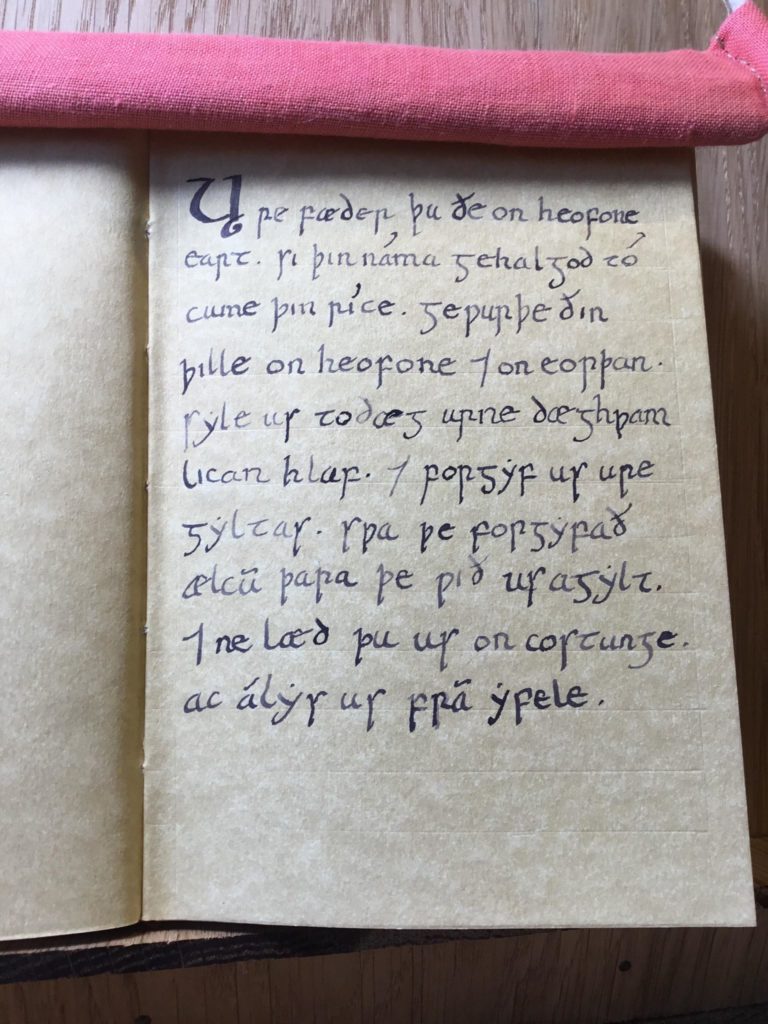 Ure fæder þu ðe on heofone
eart. si þin náma gehalgod tó
cume þin ríce. geƿurþe ðin
ƿille on heofone ⁊ on eorþan.
sẏle us todæg urne dæghƿam
lican hlaf. ⁊ forgẏf us ure
gẏltas. sƿa ƿe forgẏfað
ælcū þara þe ƿið us agẏlt.
⁊ ne læd þu us on costunge.
ac álẏs us frā ẏfele.